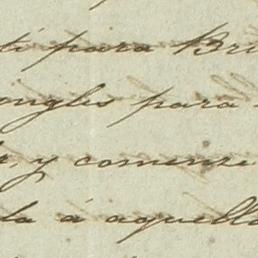 ti para Bri
ongles para
r, y comense
da á aquella